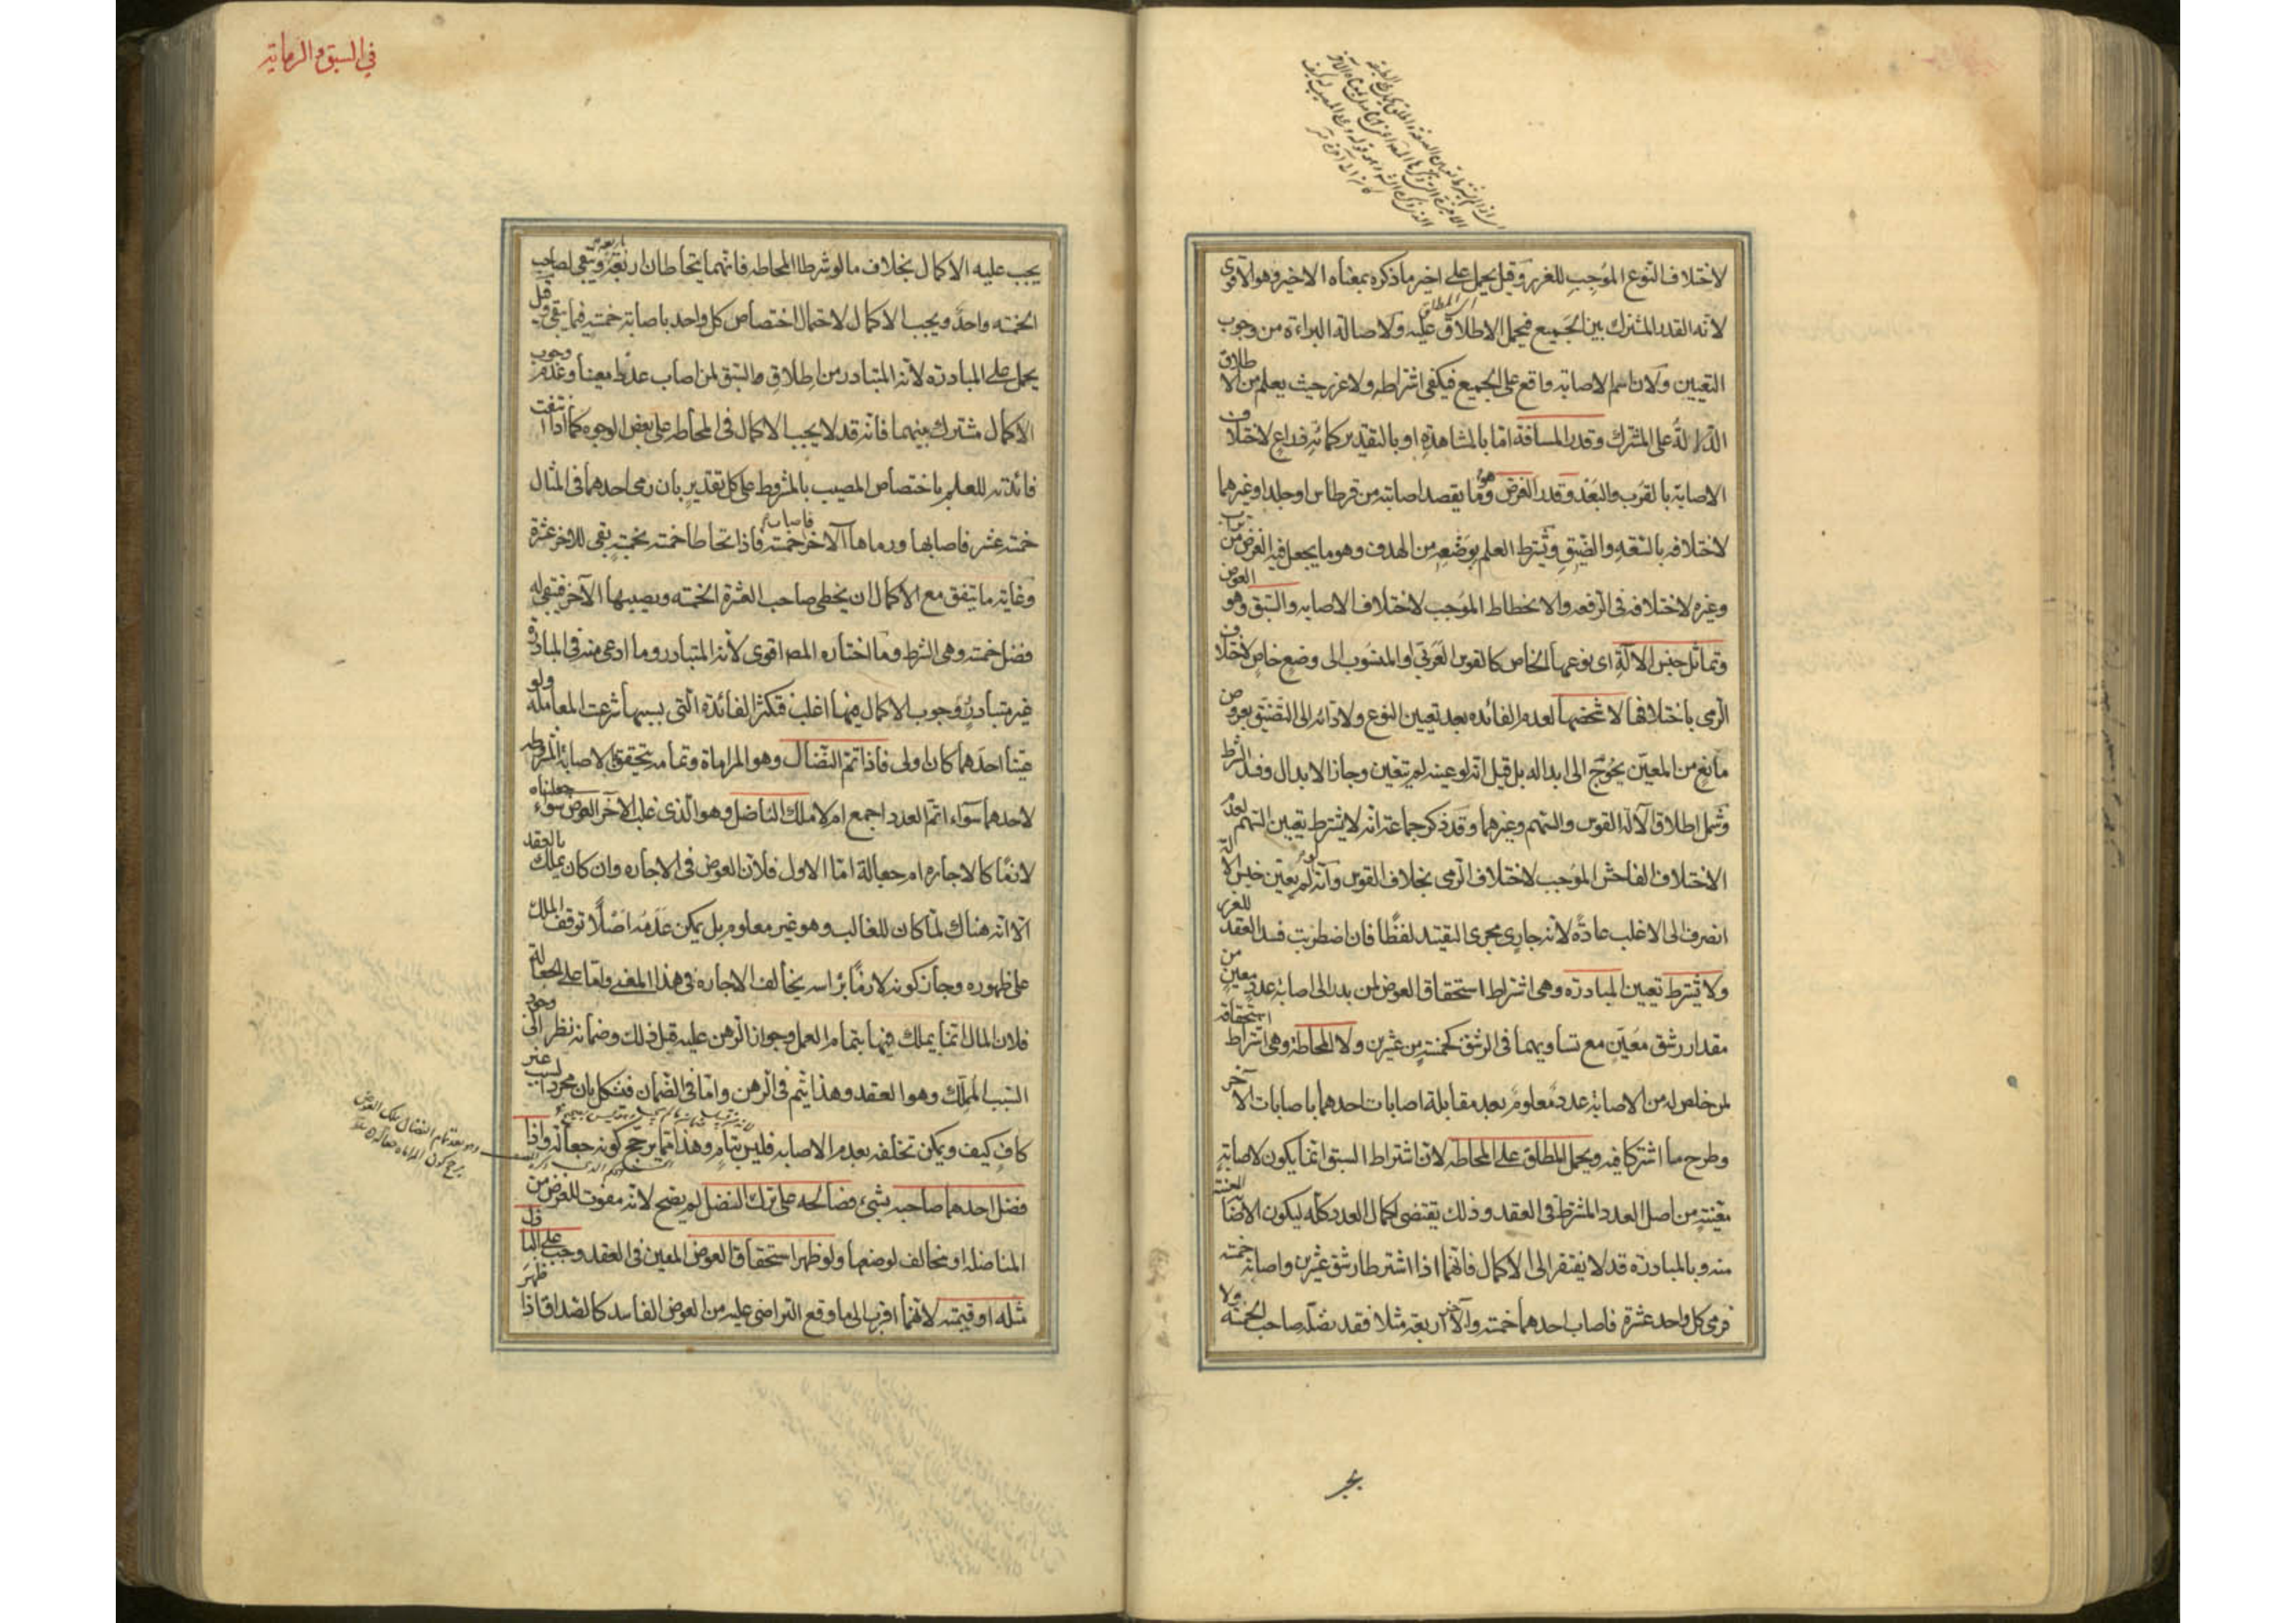 لاختلاف النوع الموجب للغرر وقيل يحمل على اخير ما ذكره بمعناه الاخير وهو الاقوى
لانه القدر المشترك بين الجميع فيحمل الاطلاق عليه ولاصالة البراءة من وجوب
التعيين ولان اسم الاصابة واقع على الجميع فيكفى اشتراطه ولا غرر حيث يعلم من الاطلاق
الدلالة على المشترك وقدر المسافة اما بالمشاهدة او بالتقدير كمائة ذراع لاختلاف
الاصابة بالقرب والبعد وقدر الغرض وهو ما يقصد اصابته من قرطاس او جلد او غيرهما
لاختلافه بالسعة والضيق ويشترط العلم بوضعه من الهدف وهو ما يجعل فيه الغرض من تراب
وغيره لاختلافه فى الرفعه والانخطاط الموجب لاختلاف الاصابه والسبق وهو العوض
وتماثل جنس الآلة اى نوعها الخاص كالقوس العربى او المنسوب الى وضع خاص لاختلاف
الرمى باختلافها لا شخصها لعدم الفائده بعد تعيين النوع ولادائه الى التضيق بعروض
مانع من المعين يحوج الى ابداله بل قيل انه لو عينه لم يتعين وجاز الابدال وفسد الشرط
وشمل اطلاق الآلة القوس والسهم وغيرهما وقد ذكر جماعة انه لا يشترط تعيين السهم لعدم
الاختلاف الفاحش الموجب لاختلاف الرمى بخلاف القوس وانه لو لم يعين جنس الآلة
انصرف الى الاغلب عادة لانه جارى مجرى التقييد لفظا فان اضطربت فسد العقد للغرر
ولا يشترط تعيين المبادرة وهى اشتراط استحقاق العوض لمن بدر الى اصابة عدد معين من
مقدار رشق معين مع تساويهما فى الرشق كخمسة من عشرين ولا المحاطة وهى اشتراط استحقاقه
لمن خلص له من الاصابة عدد معلوم بعد مقابلة اصابات احدهما باصابات الآخر
وطرح ما اشتركا فيه ويحمل المطلق على المحاطه لان اشتراط السبق انما يكون لاصابة
معينة من اصل العدد المشترط فى العقد وذلك يقتضى اكمال العدد كله ليكون الاصابة المعينة
منه وبالمبادرة قد لا يفتقر الى الاكمال فانهما اذا اشترطا رشق عشرين واصابة خمسة
فرمى كل واحد عشرة فاصاب احدهما خمسة والآخر اربعة مثلا فقد نضله صاحب الخمسه ولا
فى السبق والرماية
يجب عليه الاكمال بخلاف ما لو شرطا المحاطه فانهما يتحاطان اربعة باربعة ويبقى لصاحب
الخمسه واحد ويجب الاكمال لاحتمال اختصاص كل واحد باصابة خمسة فيما يبقى وقيل
يحمل على المبادرة لانه المتبادر من اطلاق السبق لمن اصاب عددا معينا وعدم وجوب
الاكمال مشترك بينهما فانه قد لا يجب الاكمال فى المحاطه على بعض الوجوه كما اذا انتفت
فائدته للعلم باختصاص المصيب بالمشروط على كل تقدير بان رمى احدهما فى المثال
خمسة عشر فاصابها ورماها الآخر فاصاب خمسة فاذا تحاطا خمسة بخمسة بقى للآخر عشرة
وغاية ما يتفق مع الاكمال ان يخطى صاحب العشرة الخمسه ويصيبها الآخر فيبقى له
فضل خمسة وهى الشرط وما اختاره المص اقوى لانه المتبادر وما ادعى منه فى المبادرة
غير متبادر ووجوب الاكمال فيها اغلب فتكثر الفائدة التى بسببها شرعت المعاملة ولو
عينا احدهما كان اولى فاذا تم النضال وهو المراماة وتمامه بتحقق الاصابة المشروطه
لاحدهما سواء اتم العدد اجمع ام لا ملك الناضل وهو الذى غلب الآخر العوض سواء جعلناه
لازما كالاجاره ام جعالة اما الاول فلان العوض فى الاجاره وان كان يملك بالعقد
الا انه هناك لما كان للغالب وهو غير معلوم بل يمكن عدمه اصلا توقف الملك
على ظهوره وجاز كونه لازما براسه يخالف الاجاره فى هذا المعنى واما على الجعالة
فلان المال انما يملك فيها بتمام العمل وجواز الرهن عليه قبل ذلك وضمانه نظر الى وجود
السبب المملك وهو العقد وهذا يتم فى الرهن واما فى الضمان فيشكل بان مجرد السبب غير
كاف كيف ويمكن تخلفه بعدم الاصابه فليس بتام وهذا مما يرجح كونه جعالة واذا
فضل احدهما صاحبه بشئ فصالحه على ترك النضل لم يصح لانه مفوت للغرض من
المناضله او مخالف لوضعها ولو ظهر استحقاق العوض المعين فى العقد وجب على الباذل
مثله او قيمته لانهما اقرب الى ما وقع التراضى عليه من العوض الفاسد كالصداق اذا ظهر